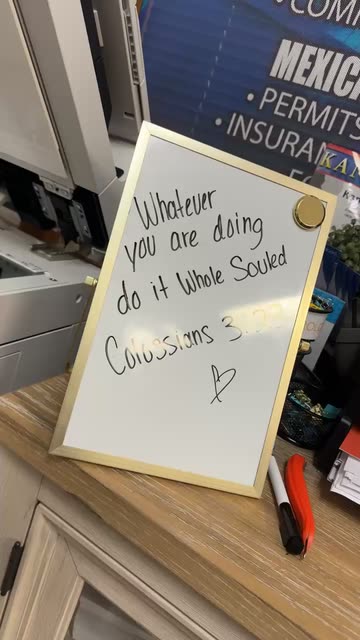 COM
MEXIC
• PERMITS
• INSURAN
KAY
Whatever
you are doing
do it Whole Souled
Colossians 3: